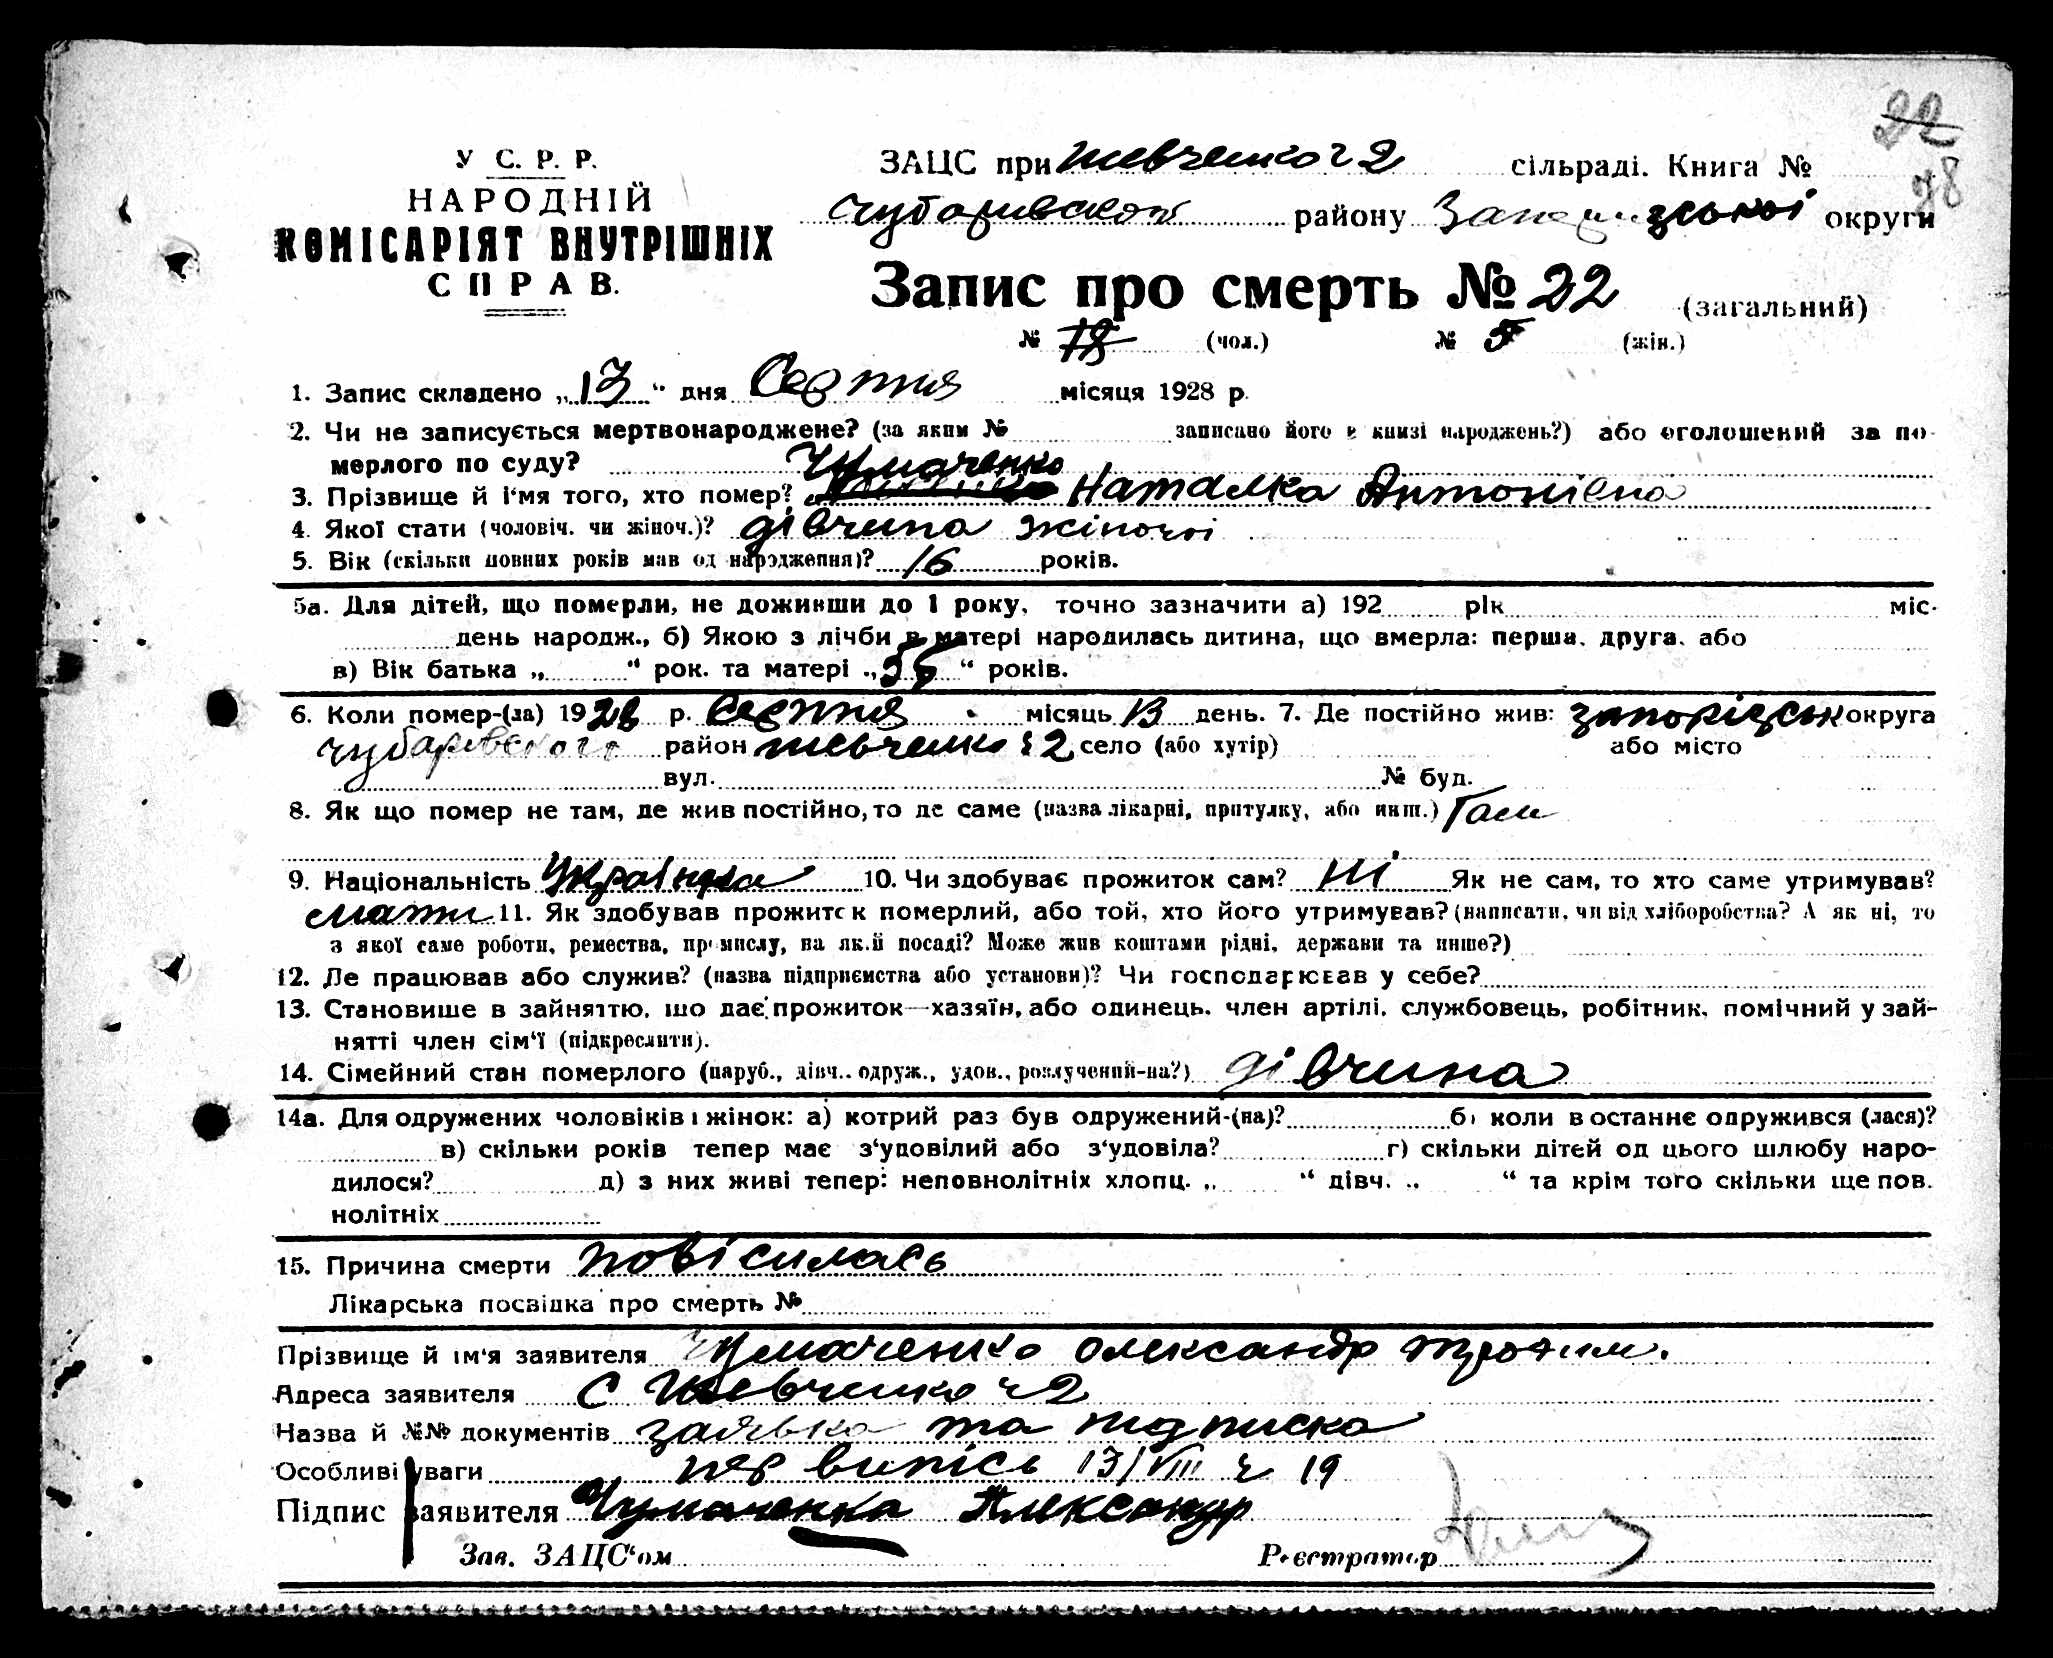 22
78
У С. Р. Р.
НАРОДНІЙ
КОМІСАРІЯТ ВНУТРІШНІХ
СПРАВ.
ЗАЦС при Шевченко ч 2 сільраді. Книга №
Чубарівского району Запорізської округи
Запис про смерть № 22 (загальний)
№ (чол.) № 5 (жін.)
1. Запис складено „13“ дня Серпня місяця 1928 р.
2. Чи не записується мертвонароджене? (за яким № записано його в книзі народжень?) або оголошений за по-
мерлого по суду?
Чумаченко
3. Прізвище й і'мя того, хто помер? Наталка Антонівна
4. Якої стати (чоловіч. чи жіноч.)? дівчина жіночоі
5. Вік (скільки повних років мав од народження)? 16 років.
5а. Для дітей, що померли, не доживши до 1 року, точно зазначити а) 192 рік міс-
день народж., б) Якою з лічби в матері народилась дитина, що вмерла: перша, друга, або
в) Вік батька „ “ рок. та матері „56“ років.
6. Коли помер-(ла) 1928 р. Серпня місяць 13 день. 7. Де постійно жив: Запорізськ округа
Чубарівського район Шевченко ч 2 село (або хутір) або місто
вул. № буд.
8. Як що помер не там, де жив постійно, то де саме (назва лікарні, притулку, або инш.) Там
9. Національність Українка 10. Чи здобуває прожиток сам? Ні Як не сам, то хто саме утримував?
мати 11. Як здобував прожиток померлий, або той, хто його утримував? (написати, чи від хліборобства? А як ні, то
з якої саме роботи, ремества, промислу, на якій посаді? Може жив коштами рідні, держави та инше?)
12. Де працював або служив? (назва підприємства або установи)? Чи господарював у себе?
13. Становище в зайняттю, що дає прожиток—хазяїн, або одинець, член артілі, службовець, робітник, помічний у зай-
нятті член сім'ї (підкреслити).
14. Сімейний стан померлого (паруб., дівч., одруж., удов., розлучений-на?) дівчина
14а. Для одружених чоловіків і жінок: а) котрий раз був одружений-(на)? б) коли в останнє одружився (лася)?
в) скільки років тепер має з'удовілий або з'удовіла? г) скільки дітей од цього шлюбу наро-
дилося? д) з них живі тепер: неповнолітніх хлопц. „ “ дівч. „ “ та крім того скільки ще пов.
нолітніх
15. Причина смерти повісилась
Лікарська посвідка про смерть №
Прізвище й ім'я заявителя Чумаченко Олександр Трохим.
Адреса заявителя С Шевченко ч 2
Назва й №№ документів заявка та підписка
Особливі уваги пер випісь 13/VIII ч 19
Підпис заявителя Чумаченка Александр
Зав. ЗАЦС'ом Реєстратор